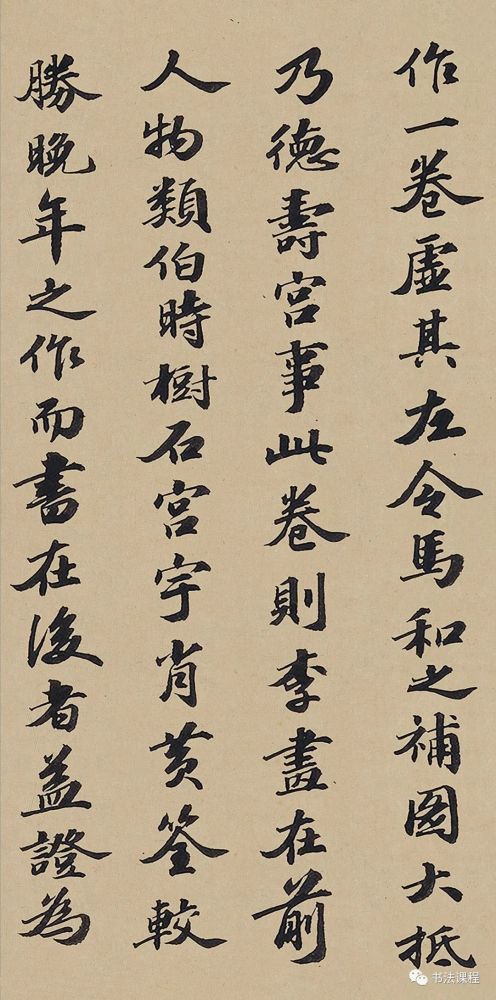 作一卷虛其左令馬和之補圖大抵
乃德壽宮事此卷則李畫在前
人物類伯時樹石宮宇肖黃筌較
勝晚年之作而書在後者益證為
书法课程